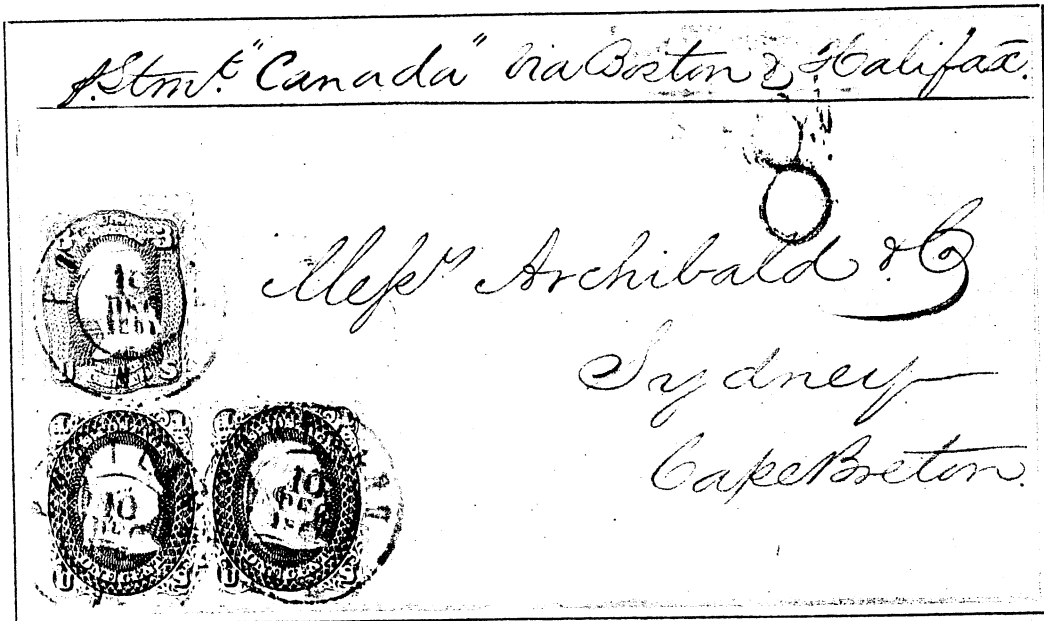 p. Stmr. "Canada" Via Boston & Halifax.
Messrs Archibald & Co
Sydney
Cape Breton.
3 3
10
DEC
1861
U S
1 1
10
DEC
U S
1 1
10
DEC
U S